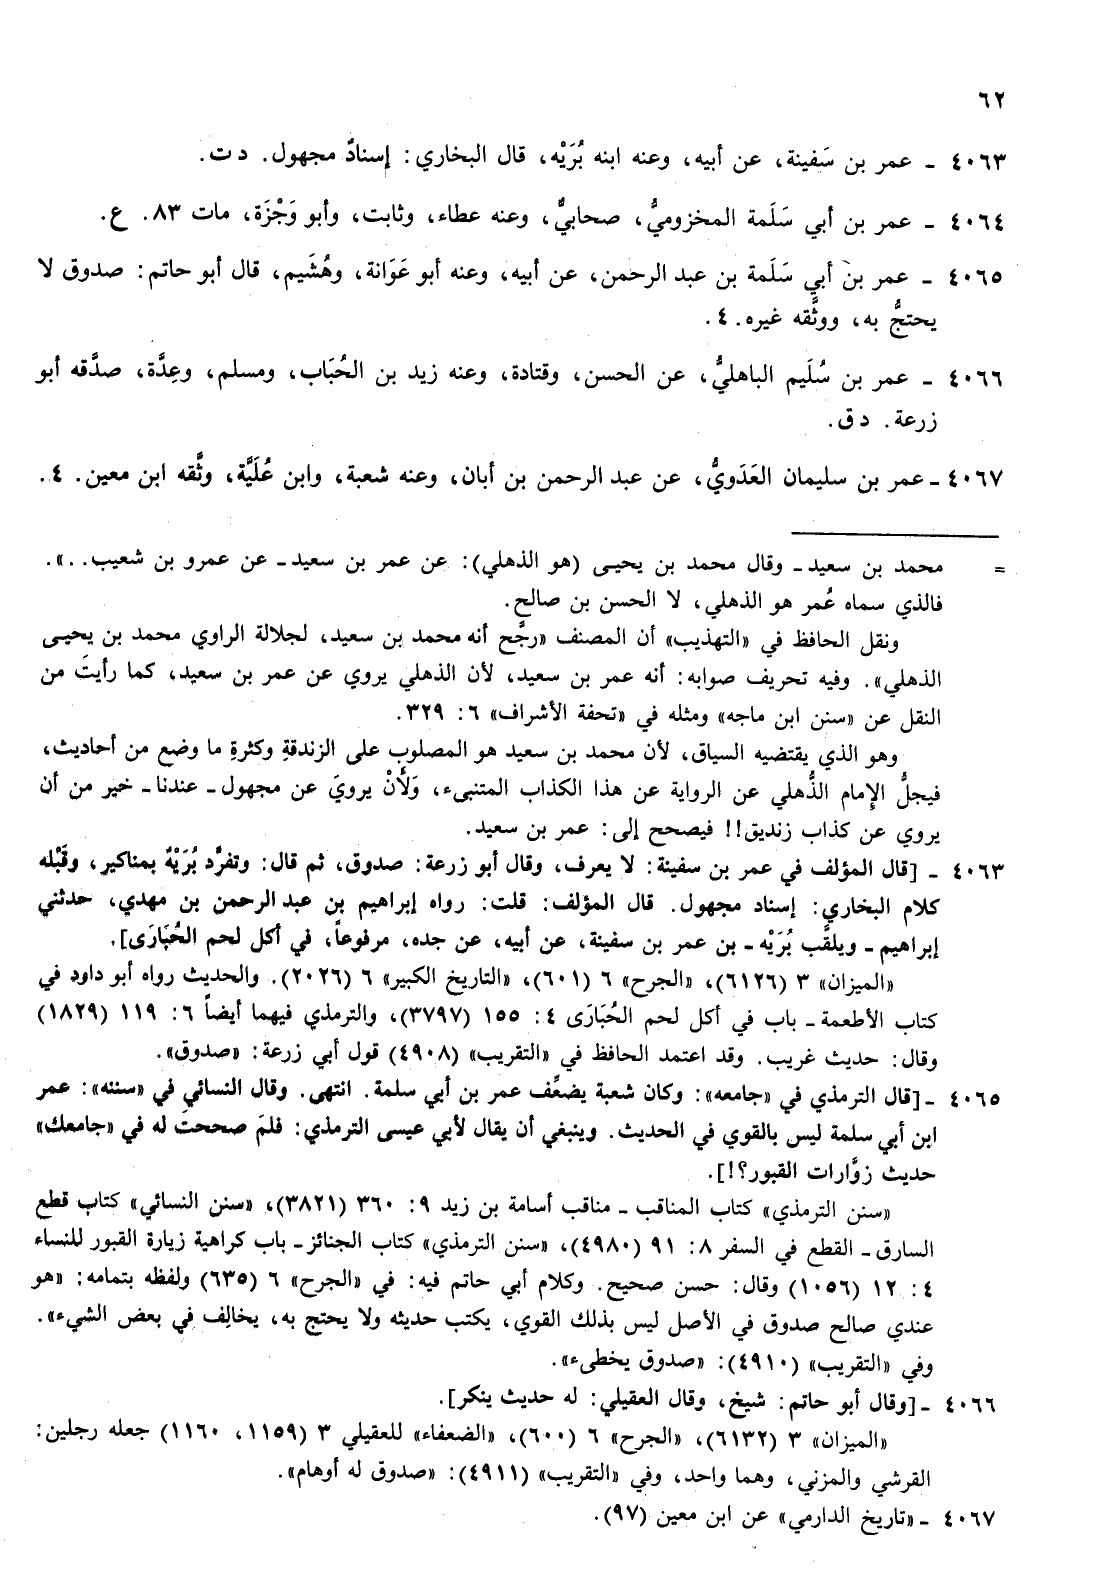 ٦٢
٤٠٦٣ ـ عمر بن سَفينة، عن أبيه، وعنه ابنه بُرَيْه، قال البخاري: إسنادٌ مجهول. د ت.
٤٠٦٤ ـ عمر بن أبي سَلَمة المخزوميُّ، صحابيٌّ، وعنه عطاء، وثابت، وأبو وَجْزَة، مات ٨٣. ع.
٤٠٦٥ ـ عمر بن أبي سَلَمة بن عبد الرحمن، عن أبيه، وعنه أبو عَوَانة، وهُشَيم، قال أبو حاتم: صدوق لا
يحتجُّ به، ووثَّقه غيره. ٤.
٤٠٦٦ ـ عمر بن سُلَيم الباهليُّ، عن الحسن، وقتادة، وعنه زيد بن الحُبَاب، ومسلم، وعِدَّة، صدَّقه أبو
زرعة. د ق.
٤٠٦٧ ـ عمر بن سليمان العَدَويُّ، عن عبد الرحمن بن أبان، وعنه شعبة، وابن عُلَيَّة، وثَّقه ابن معين. ٤.
= محمد بن سعيد ـ وقال محمد بن يحيى (هو الذهلي): عن عمر بن سعيد ـ عن عمرو بن شعيب..».
فالذي سماه عُمر هو الذهلي، لا الحسن بن صالح.
ونقل الحافظ في «التهذيب» أن المصنف «رجَّح أنه محمد بن سعيد، لجلالة الراوي محمد بن يحيى
الذهلي». وفيه تحريف صوابه: أنه عمر بن سعيد، لأن الذهلي يروي عن عمر بن سعيد، كما رأيتَ من
النقل عن «سنن ابن ماجه» ومثله في «تحفة الأشراف» ٦: ٣٢٩.
وهو الذي يقتضيه السياق، لأن محمد بن سعيد هو المصلوب على الزندقةِ وكثرةِ ما وضع من أحاديث،
فيجلُّ الإمام الذُّهلي عن الرواية عن هذا الكذاب المتنبىء، وَلَأَنْ يرويَ عن مجهول ـ عندنا ـ خير من أن
يروي عن كذاب زنديق!! فيصحح إلى: عمر بن سعيد.
٤٠٦٣ ـ [قال المؤلف في عمر بن سفينة: لا يعرف، وقال أبو زرعة: صدوق، ثم قال: وتفرَّد بُرَيْهٌ بمناكير، وقَبْله
كلام البخاري: إسناد مجهول. قال المؤلف: قلت: رواه إبراهيم بن عبد الرحمن بن مهدي، حدثني
إبراهيم ـ ويلقَّب بُرَيْه ـ بن عمر بن سفينة، عن أبيه، عن جده، مرفوعاً، في أكل لحم الحُبَارَى].
«الميزان» ٣ (٦١٢٦)، «الجرح» ٦ (٦٠١)، «التاريخ الكبير» ٦ (٢٠٢٦). والحديث رواه أبو داود في
كتاب الأطعمة ـ باب في أكل لحم الحُبَارَى ٤: ١٥٥ (٣٧٩٧)، والترمذي فيهما أيضاً ٦: ١١٩ (١٨٢٩)
وقال: حديث غريب. وقد اعتمد الحافظ في «التقريب» (٤٩٠٨) قول أبي زرعة: «صدوق».
٤٠٦٥ ـ [قال الترمذي في «جامعه»: وكان شعبة يضعِّف عمر بن أبي سلمة. انتهى. وقال النسائي في «سننه»: عمر
ابن أبي سلمة ليس بالقوي في الحديث. وينبغي أن يقال لأبي عيسى الترمذي: فلمَ صححتَ له في «جامعك»
حديث زوَّارات القبور؟!].
«سنن الترمذي» كتاب المناقب ـ مناقب أسامة بن زيد ٩: ٣٦٠ (٣٨٢١)، «سنن النسائي» كتاب قطع
السارق ـ القطع في السفر ٨: ٩١ (٤٩٨٠)، «سنن الترمذي» كتاب الجنائز ـ باب كراهية زيارة القبور للنساء
٤: ١٢ (١٠٥٦) وقال: حسن صحيح. وكلام أبي حاتم فيه: في «الجرح» ٦ (٦٣٥) ولفظه بتمامه: «هو
عندي صالح صدوق في الأصل ليس بذلك القوي، يكتب حديثه ولا يحتج به، يخالِف في بعض الشيء».
وفي «التقريب» (٤٩١٠): «صدوق يخطىء».
٤٠٦٦ ـ [وقال أبو حاتم: شيخ، وقال العقيلي: له حديث ينكر].
«الميزان» ٣ (٦١٣٢)، «الجرح» ٦ (٦٠٠)، «الضعفاء» للعقيلي ٣ (١١٥٩، ١١٦٠) جعله رجلين:
القرشي والمزني، وهما واحد، وفي «التقريب» (٤٩١١): «صدوق له أوهام».
٤٠٦٧ ـ «تاريخ الدارمي» عن ابن معين (٩٧).